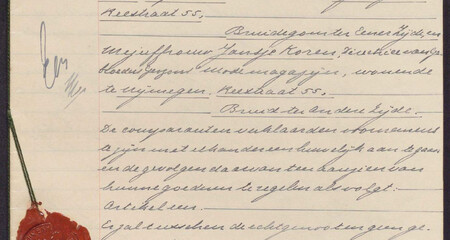 Reestraat 55,
Bruidegom ter eener zijde, en
Mejuffrouw Jansje Koren,
magazijn, wonende
te Nijmegen, Reestraat 55.
Bruid ter andere zijde.
De comparanten verklaarden voornemens
te zijn met elkander een huwelijk aan te gaan
en de gevolgen daarvan ten aanzien van
hunne goederen te regelen als volgt:
Artikel een.
Er zal tusschen de echtgenooten geen ge-